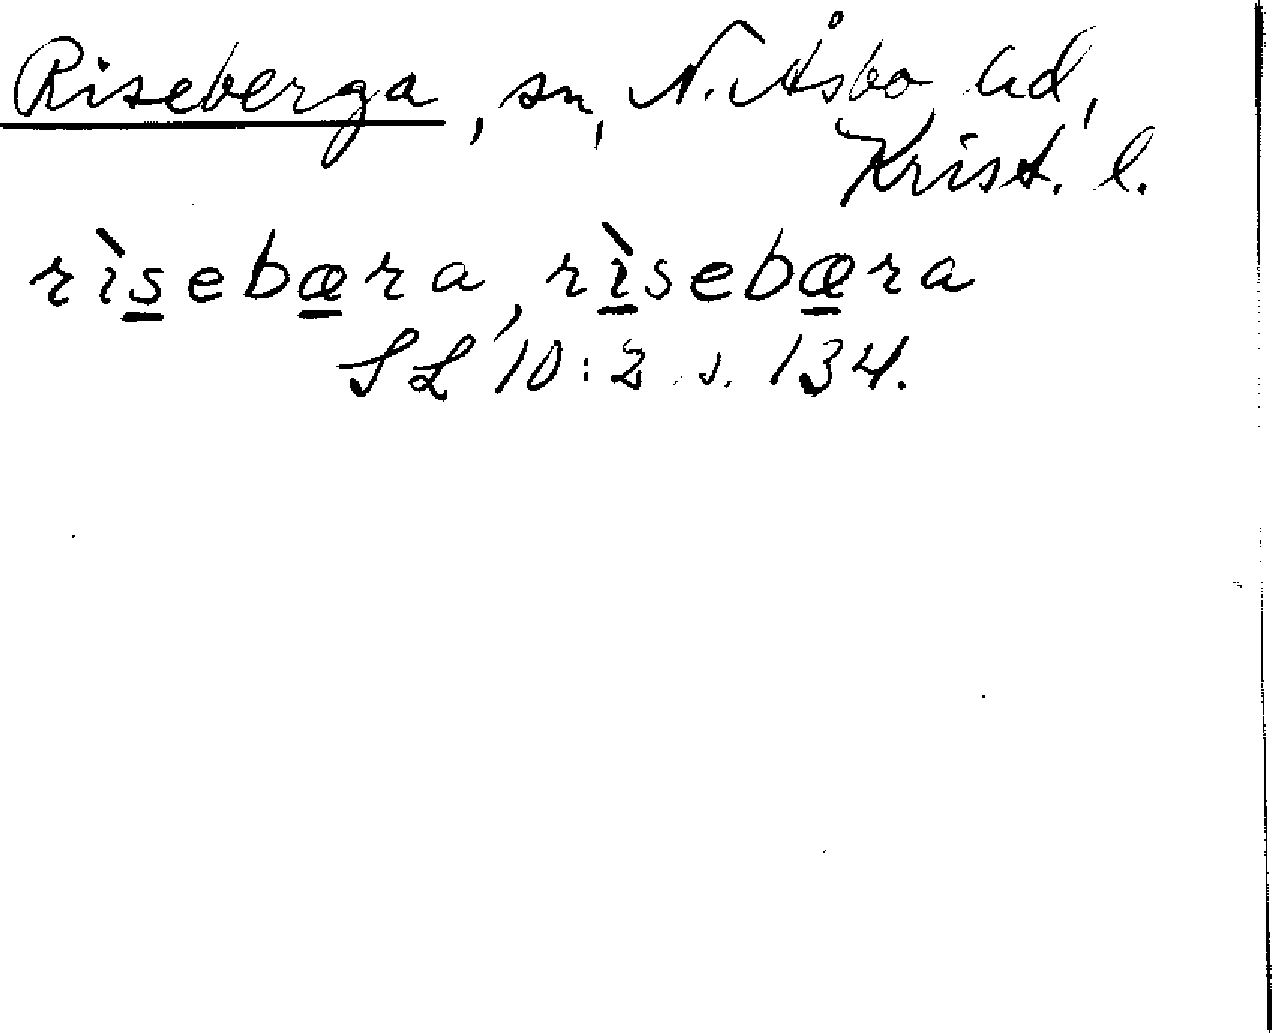 Riseberga, sn, N. Åsbo hd,
Krist. l.
rìs̲ebæ̲ra, rì̲sebæ̲ra
SL 10:2 s. 134.